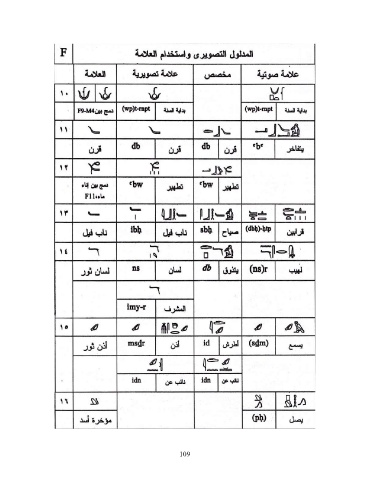 F المدلول التصويرى واستخدام العلامة
علامة صوتية مخصص علامة تصويرية العلامة
١٠
بداية السنة (wp)t-rnpt بداية السنة (wp)t-rnpt دمج بين F9-M4
١١
يتفاخر ꜥbꜥ قرن db قرن db قرن
١٢
تطهير ꜥbw تطهير ꜥbw دمج بين إناء
ماء+F11
١٣
قرابين (dbḥ)-ḥtp صباح sbḥ ناب فيل ibḥ ناب فيل
١٤
لهيب (ns)r يتذوق db لسان ns لسان ثور
المشرف imy-r
١٥
يسمع (sḏm) أطرش id أذن msḏr أذن ثور
نائب عن idn نائب عن idn
١٦
يصل (pḥ) مؤخرة أسد
109